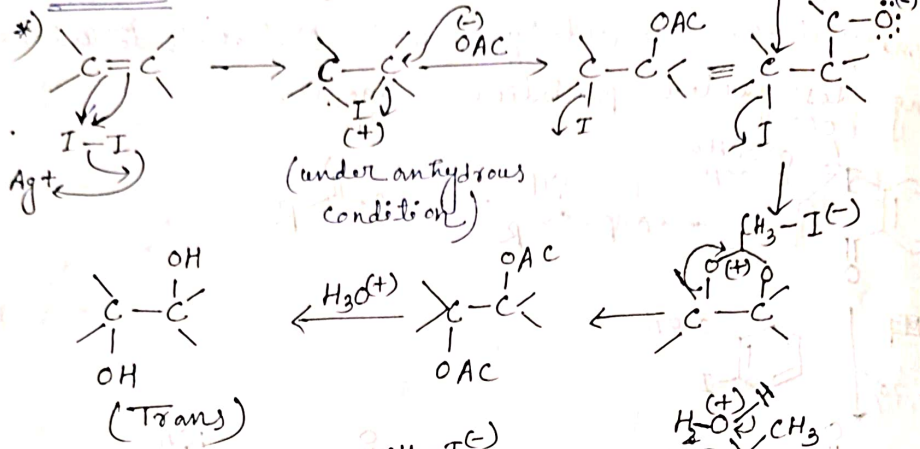 *)
C=C
I-I
Ag+
C-C
I
(+)
(-)
OAC
(under anhydrous
condition)
OAC
C-C
I
≡
C-O (-)
C-C
I
CH3-I(-)
O (+) O
C-C
OAC
C-C
OAC
H3O(+)
OH
C-C
OH
(Trans)
I(-)
(+)
H2-O H
CH3